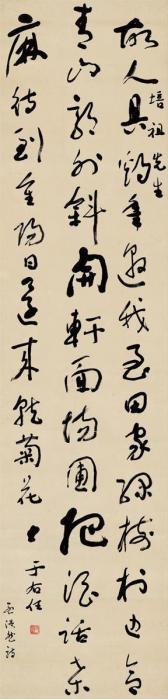 培祖先生
故人具雞黍邀我至田家綠樹村邊合
青山郭外斜開軒面場圃把酒話桑
麻待到重陽日還來就菊花
孟浩然詩
于右任